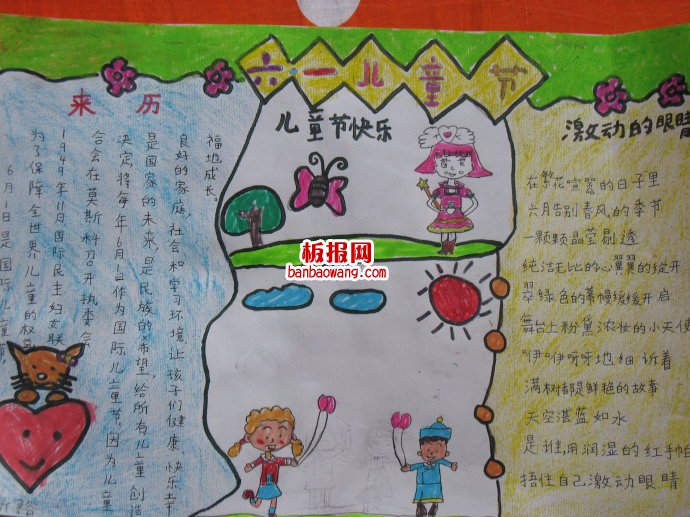 六·一儿童节
儿童节快乐
来历
6月1日是国际儿童
为了保障全世界儿童的权
1949年11月国际民主妇女联
合会在莫斯科召开执委会
决定将每年6月1日作为国际儿童节,因为儿童
是国家的未来,是民族的希望,给所有儿童创造
良好的家庭,社会和学习环境让孩子们健康、快乐、幸
福地成长。
板报网
banbaowang.com
激动的眼睛
在繁花喧嚣的日子里
六月告别春风的季节
一颗颗晶莹剔透
纯洁无比的心翼翼的绽开
翠绿色的幕幔缓缓开启
舞台上粉黛浓妆的小天使
"咿"伊呀呀地细诉着
满树都是鲜艳的故事
天空湛蓝如水
是谁,用润湿的红手帕
捂住自己激动眼睛